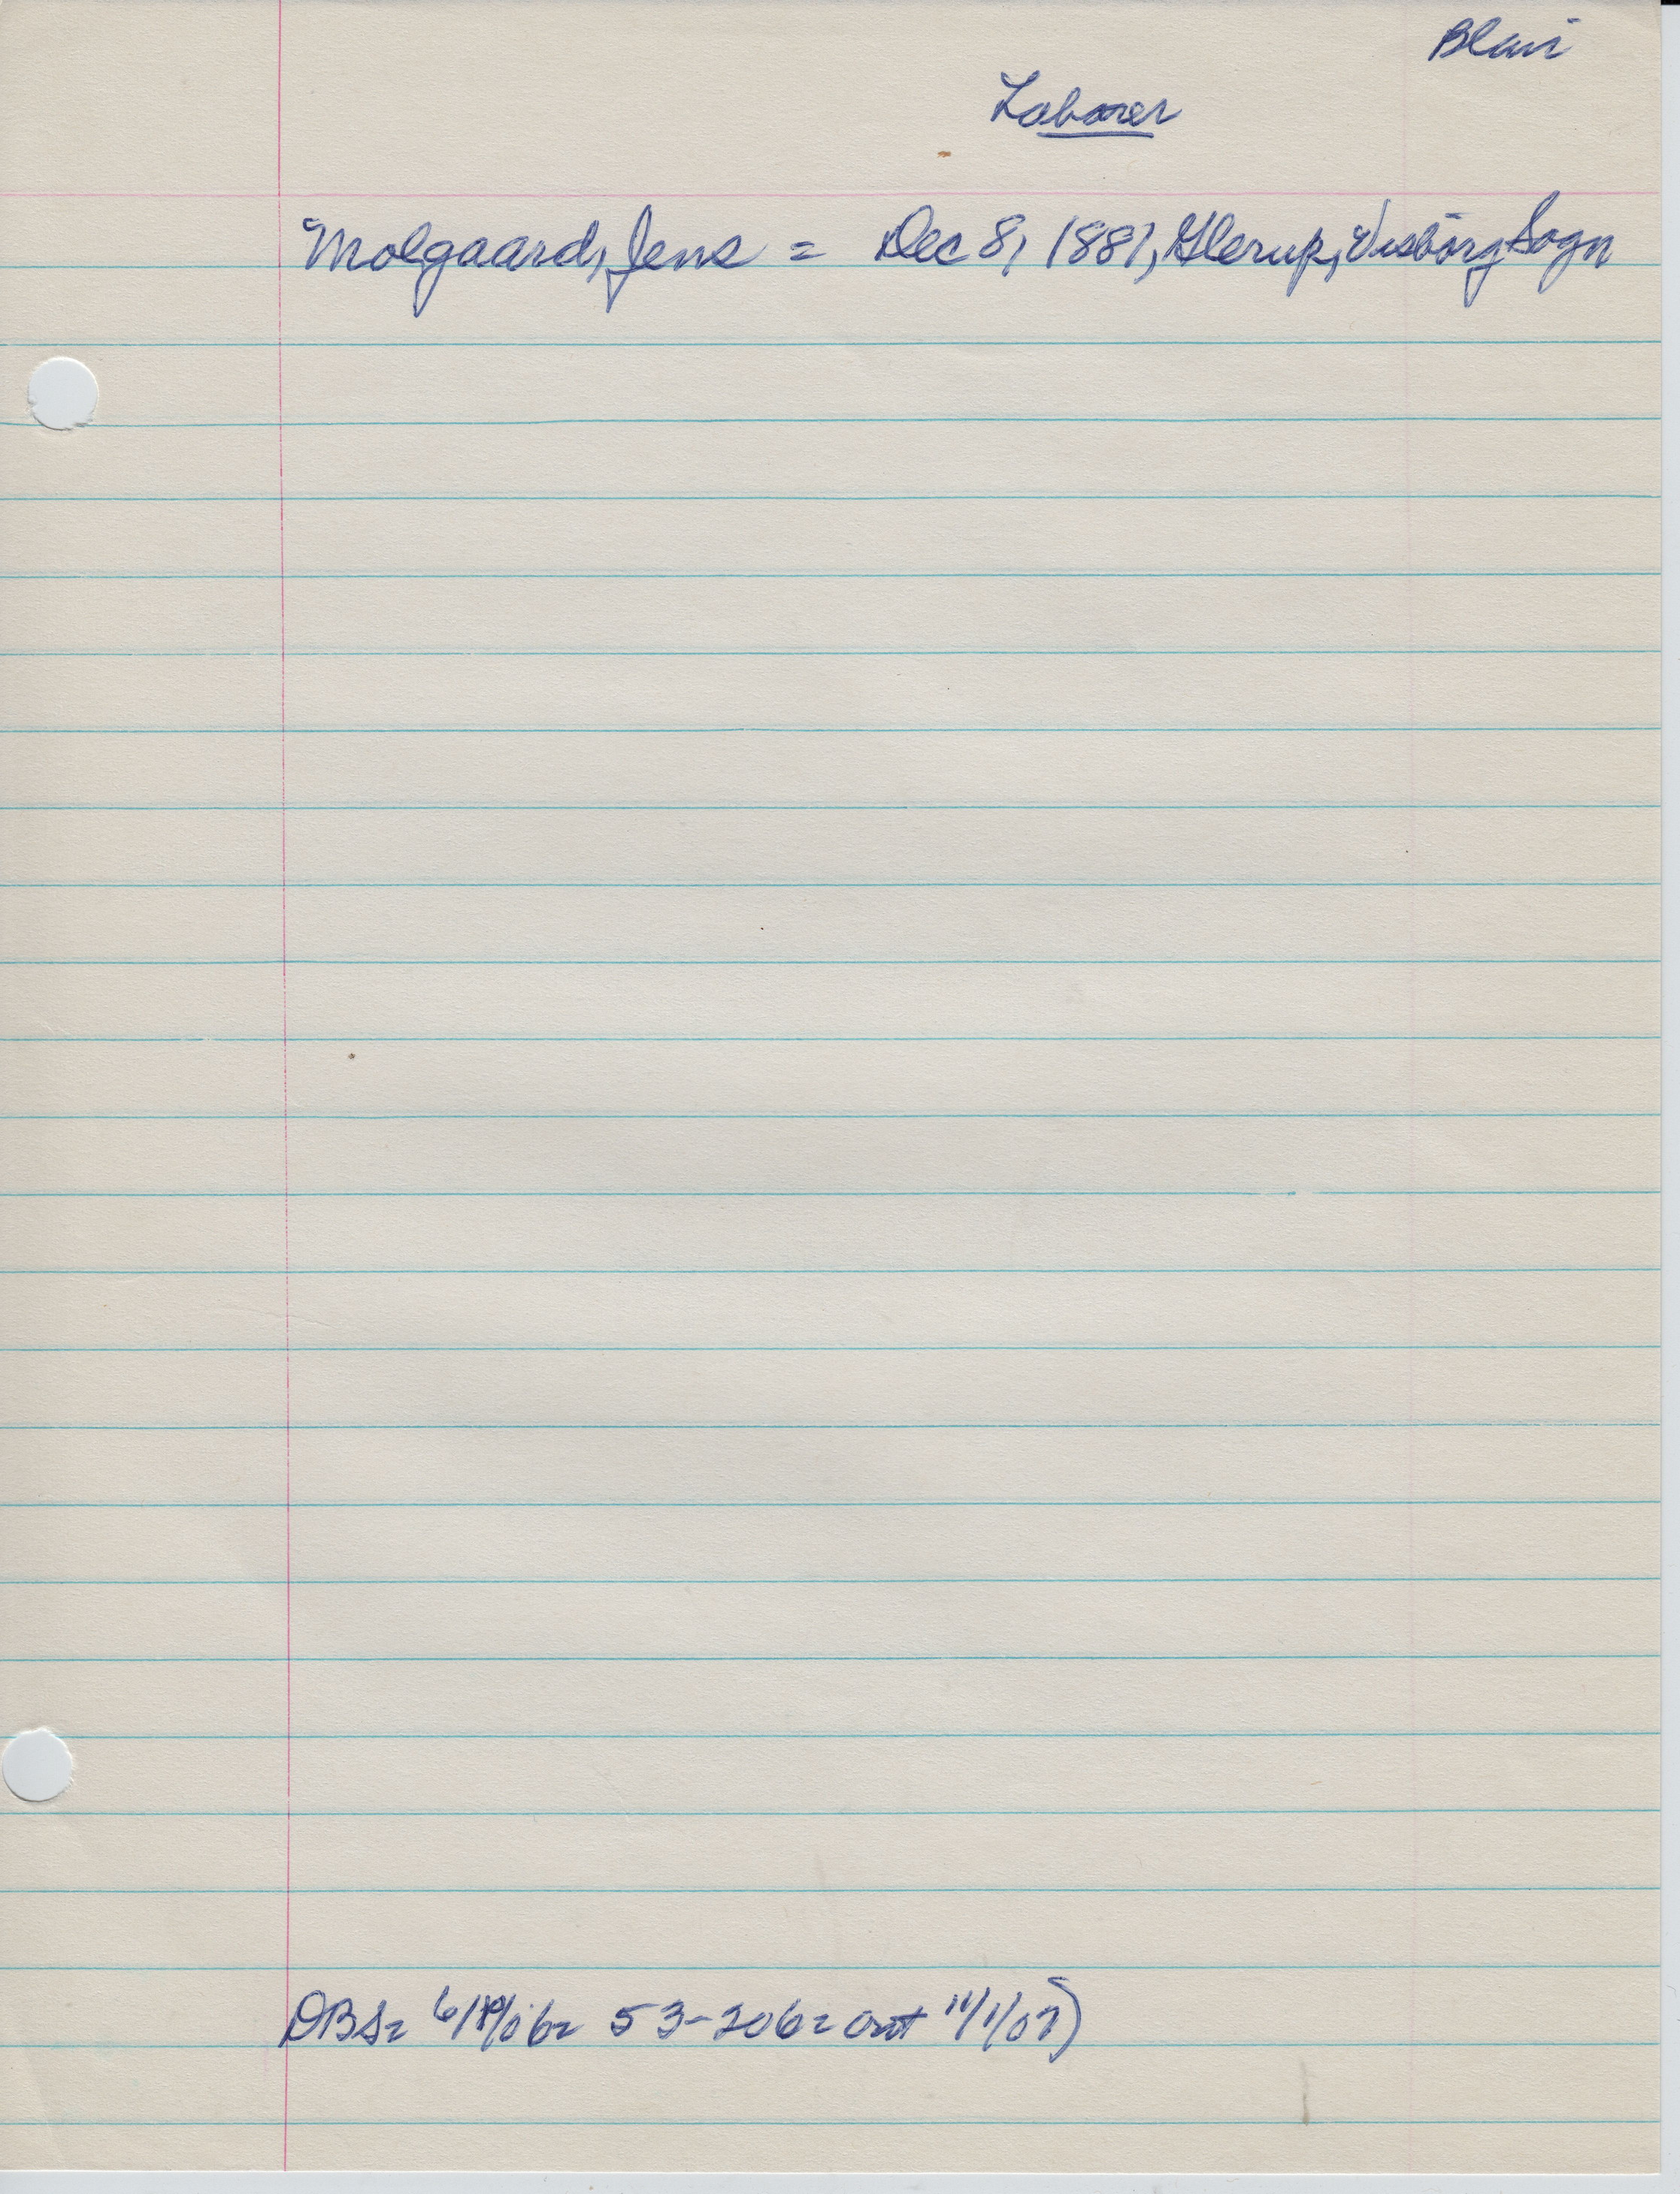 Blair
Laborer
Molgaard, Jens = Dec 8, 1881, Glerup, Visborg Sogn
DBS= 53-206= out 11/1/07)